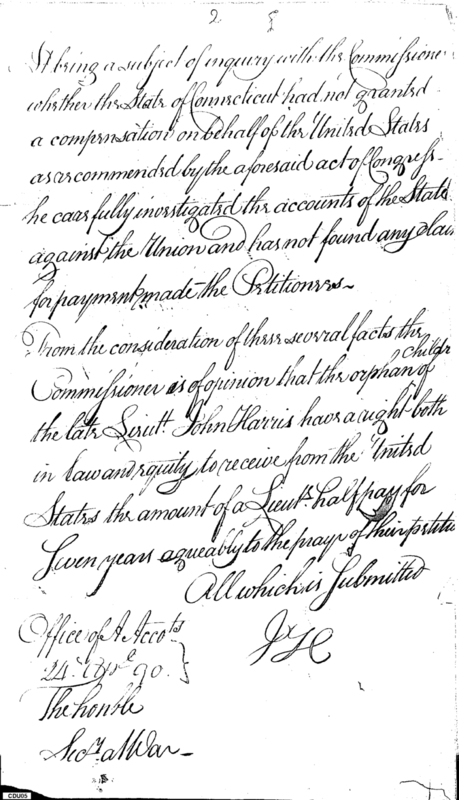 2
It being a subject of inquiry with the Commissione
whether the State of Connecticut had not granted
a compensation on behalf of the United States
as recommended by the aforesaid act of Congress
he carefully investigated the accounts of the State
against the Union and has not found any clai
for payment made the Petitioners
From the consideration of these several facts the
Commissioner is of opinion that the orphan childr of
the late Lieut. John Harris have a right both
in law and equity to receive from the United
States the amount of a Lieuts. half pay for
Seven years agreeably to the prayr of their petitio
All which is Submitted
Office of A Accots
24. 90.
The honble
Secry. at War
CDU05